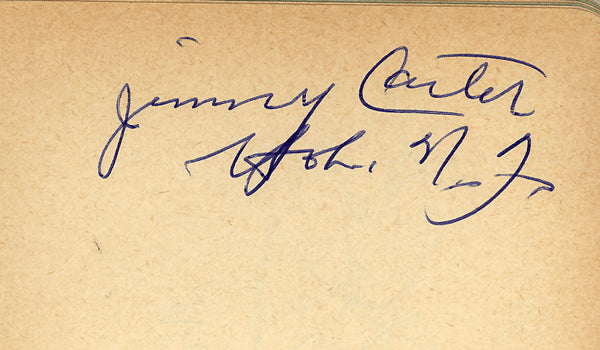 Jimmy Carter
N. J.